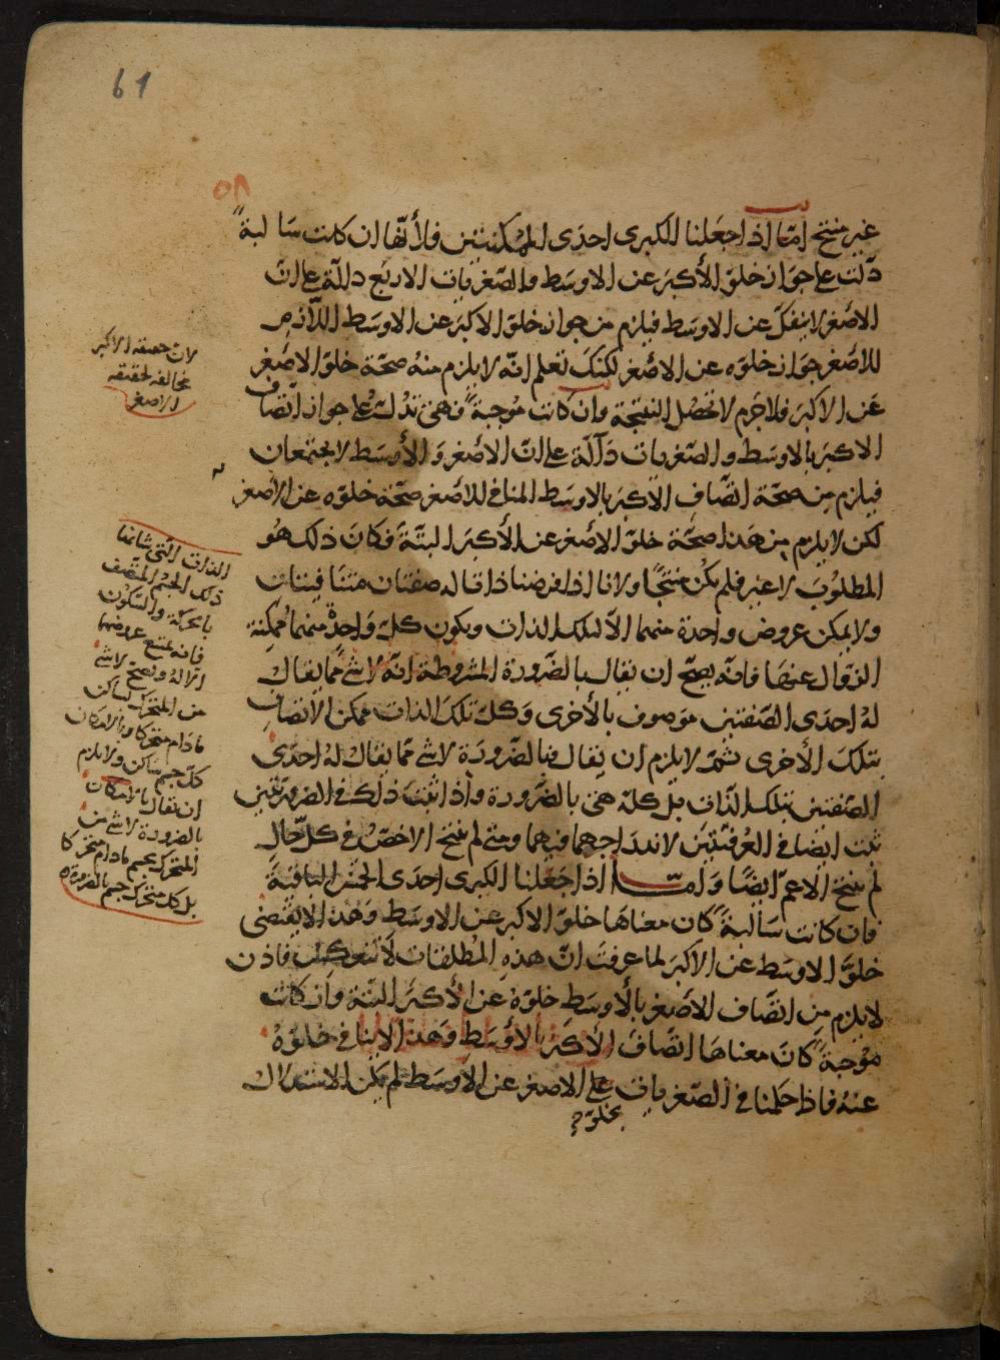 61
٥٨
غير منتج اما اذا جعلنا الكبرى احدى الممكنتين فلأنها ان كانت سالبة
دلت على جواز خلو الأكبر عن الاوسط والصغريات الاربع دالة على ان
الاصغر لا ينفك عن الاوسط فيلزم من جواز خلو الاكبر عن الاوسط اللازم
للاصغر جواز خلوه عن الاصغر لكنك تعلم انه لا يلزم منه صحة خلو الاصغر
عن الاكبر فلا جرم لا تحصل النتيجة وان كانت موجبة فهى تدل على جواز اتصاف
الاكبر بالاوسط والصغريات دآلة على ان الاصغر والأوسط لا يجتمعان
فيلزم من صحة اتصاف الاكبر بالاوسط المنافى للاصغر صحة خلوه عن الاصغر
لكن لا يلزم من هذا صحة خلو الاصغر عن الأكبر البتة فكان ذلك هو
المطلوب لا غير فلم يكن منتجا ولانا اذا فرضنا ذاتا له صفتان متنافيتان
ولا يمكن عروض واحدة منهما الا لتلك الذات ويكون كل واحدة منهما ممكنة
الزوال عنها فانه يصح ان يقال بالضرورة المشروطة انه لا شئ مما يقال
له احدى الصفتين موصوف بالأخرى وكل تلك الذات ممكن الاتصاف
بتلك الأخرى ثم لا يلزم ان يقال فبالضرورة لا شئ مما يقال له احدى
الصفتين بتلك الذات بل كله هى بالضرورة واذا ثبت ذلك فى الضروريتين
ثبت ايضا فى العرفيتين لاندراجهما فيهما ومتى لم ينتج الاخص فى كل حال
لم ينتج الاعم ايضا واما اذا جعلنا الكبرى احدى الخمس الباقية
فان كانت سالبة كان معناها خلو الاكبر عن الاوسط وهذا لا يقتضى
خلو الاوسط عن الاكبر لما عرفت ان هذه المطلقات لا تنعكس فاذن
لا يلزم من اتصاف الاصغر بالأوسط خلوه عن الأكبر البتة وان كانت
موجبة كان معناها اتصاف الأكبر بالأوسط وهذا لا ينافى خلوه
عنه فاذا حكمنا فى الصغريات على الاصغر عن الأوسط لم يكن الاستدلال
بخلو
لان حقيقة الاكبر
مخالفة لحقيقة
الاصغر
الذات التى شانها
ذلك الجسم المتصف
بالحركة والسكون
فانه يمتنع عروضهما
الا له ويصح لا شئ
من المتحرك بساكن
ما دام متحركا وبالامكان
كل جسم ساكن ولا يلزم
ان يقال بالامكان
بالضرورة لا شئ من
المتحرك بجسم ما دام متحركا
بل كل متحرك جسم بالضرورة